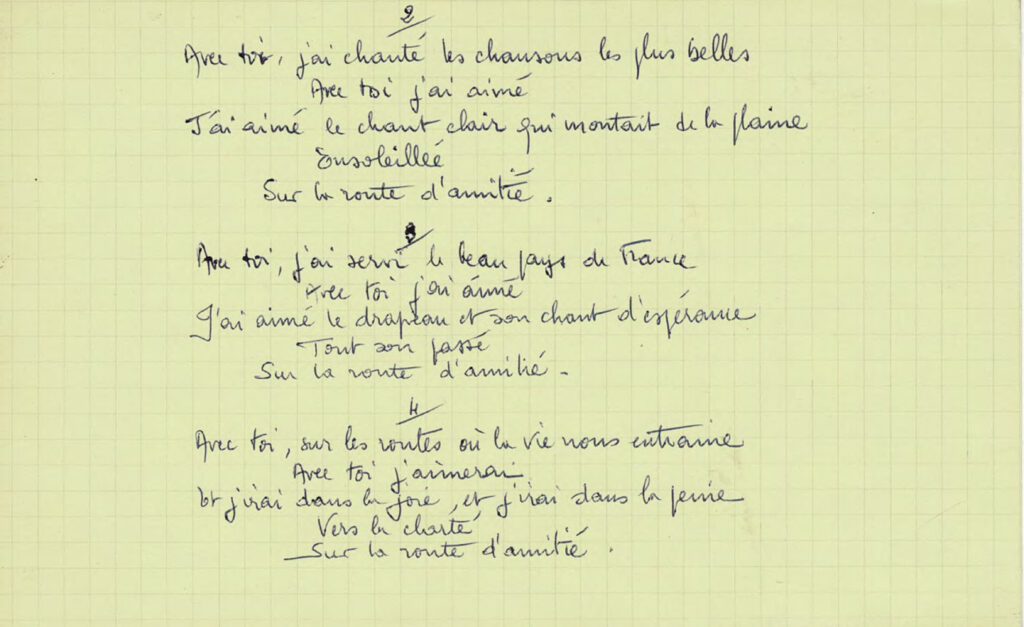 2
Avec toi, j'ai chanté les chansons les plus belles
Avec toi j'ai aimé
J'ai aimé le chant clair qui montait de la plaine
Ensoleillée
Sur la route d'amitié.
3
Avec toi, j'ai servi le beau pays de France
Avec toi j'ai aimé
J'ai aimé le drapeau et son chant d'espérance
Tout son passé
Sur la route d'amitié -
4
Avec toi, sur les routes où la vie nous entraine
Avec toi j'aimerai
Et j'irai dans la joie, et j'irai dans la peine
Vers la clarté
Sur la route d'amitié.